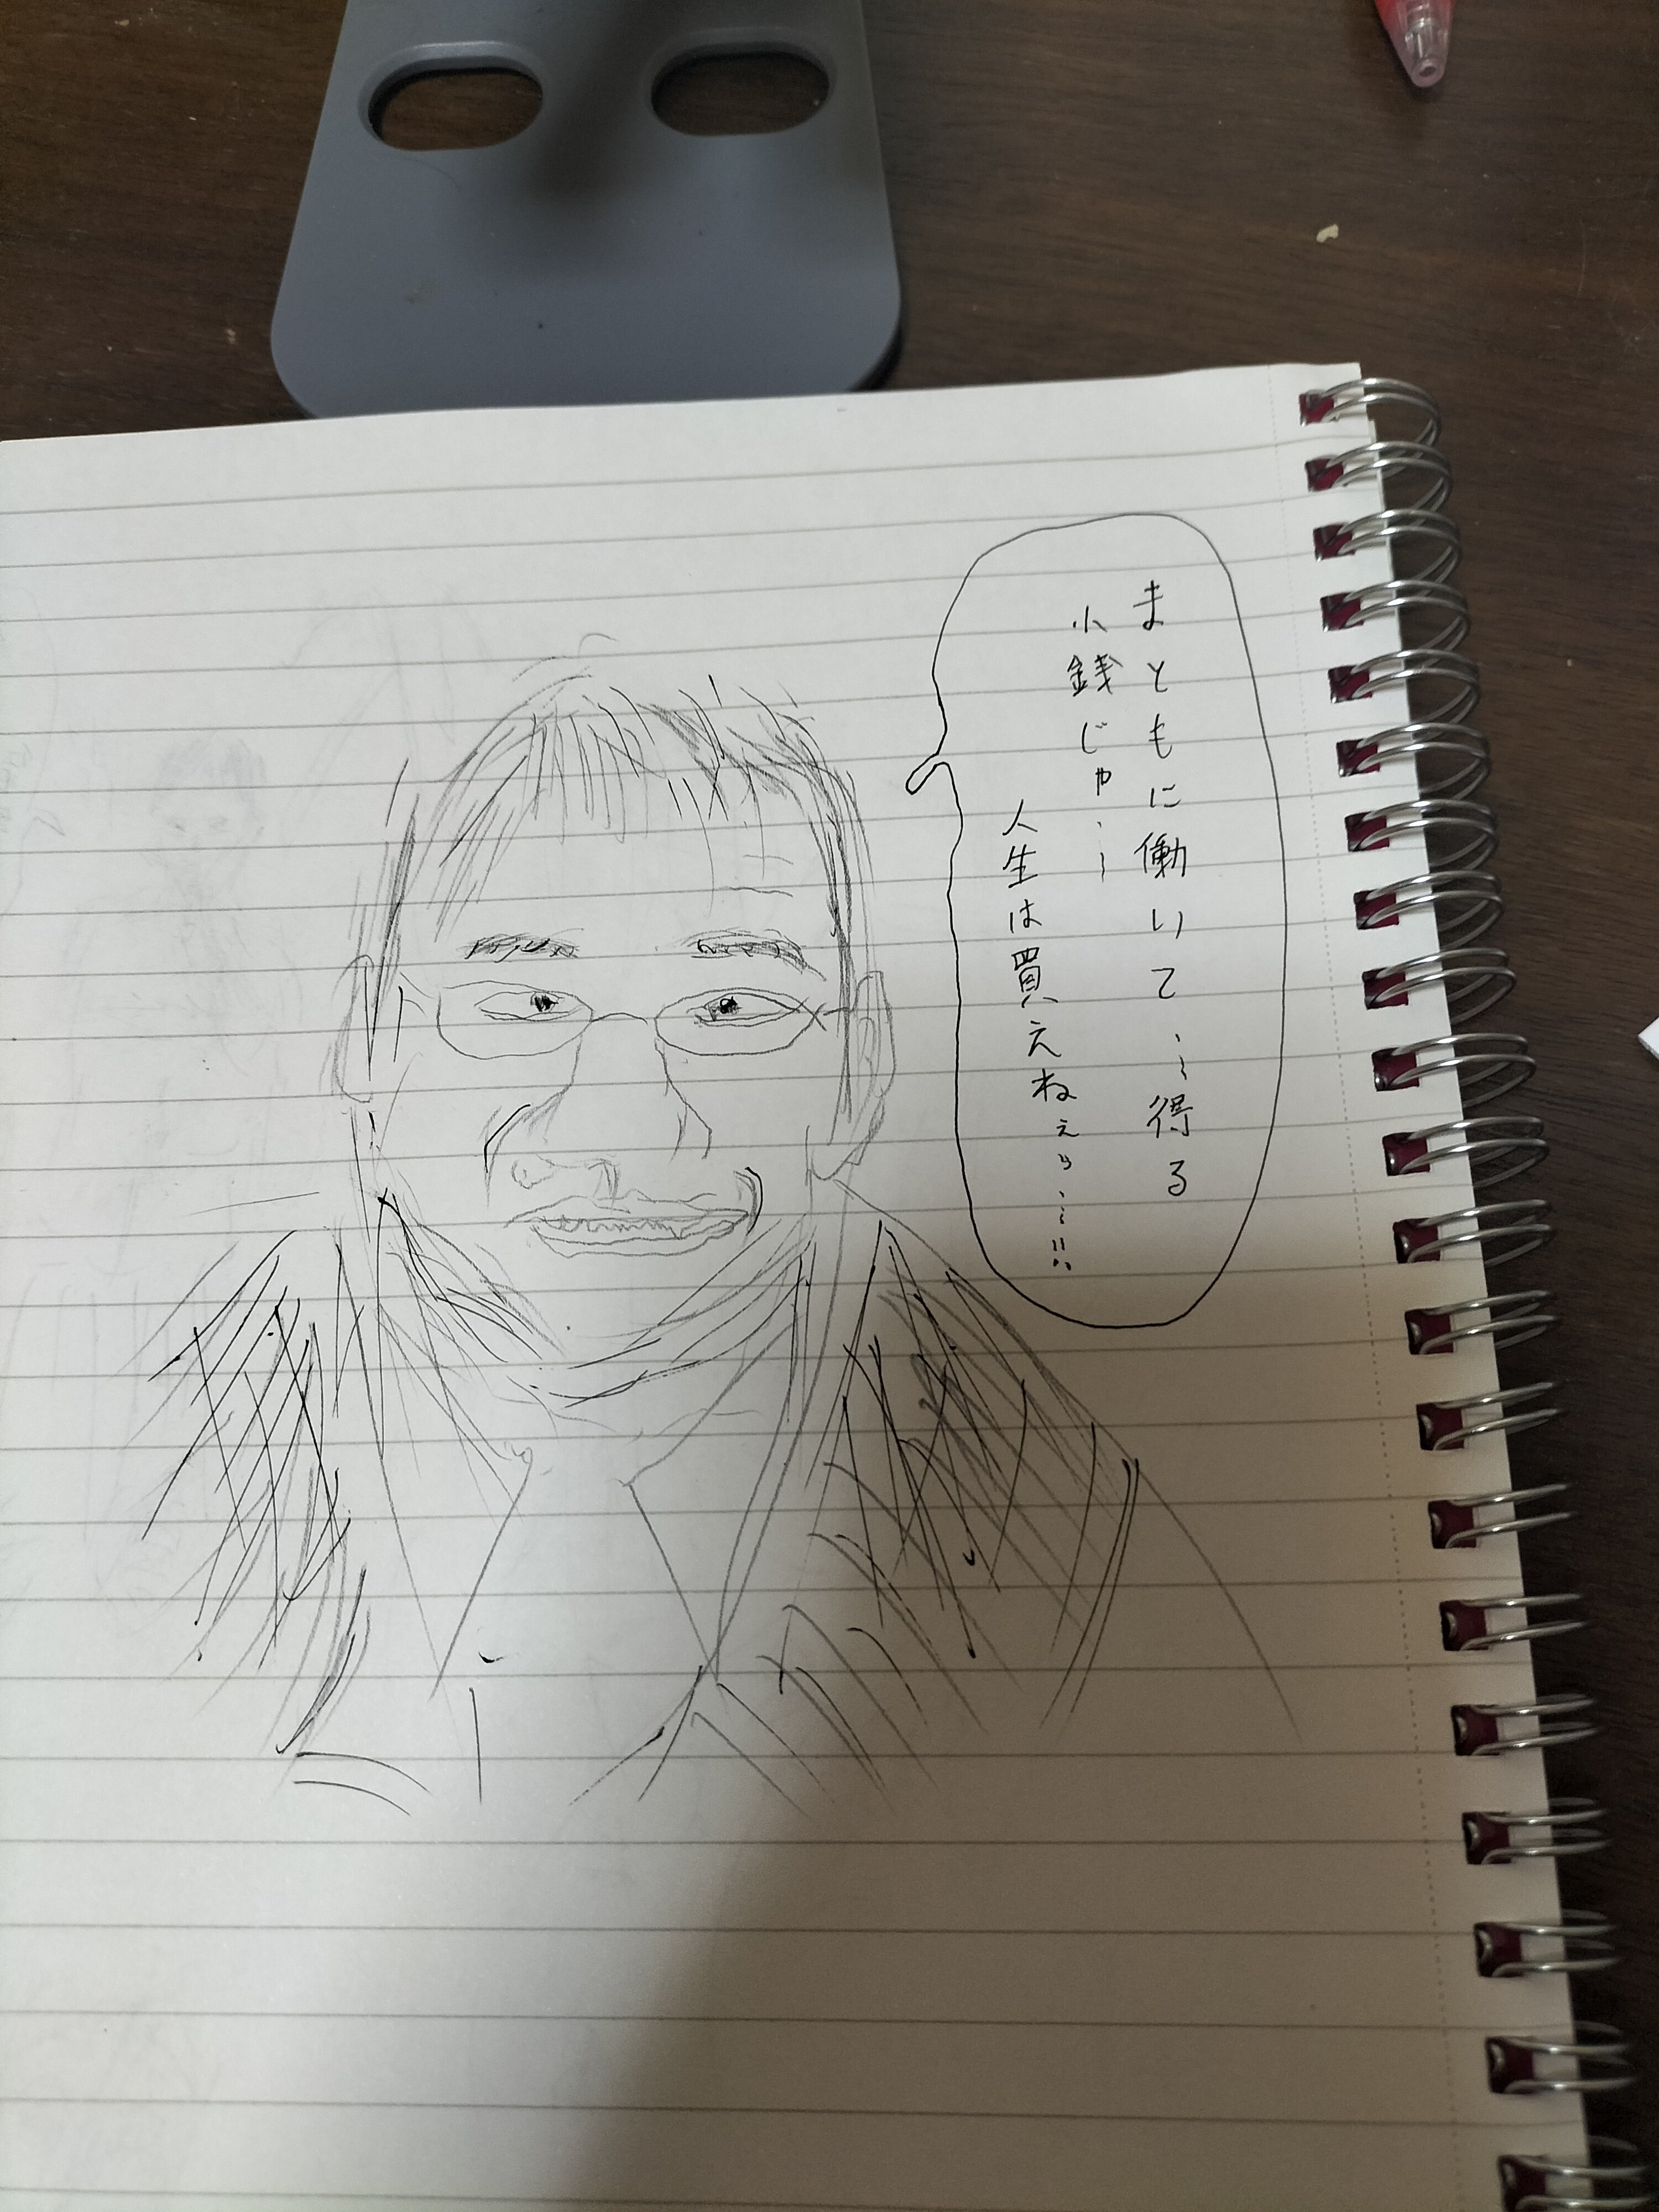 まともに働いて……得る
小銭じゃ……
人生は買えねぇっ……!!